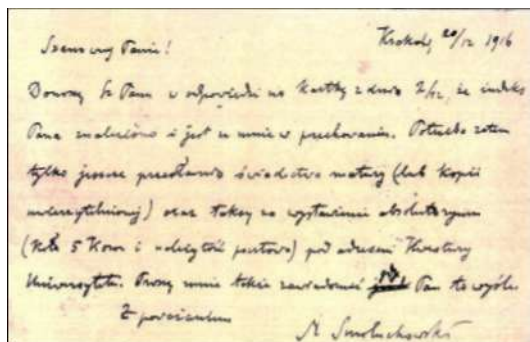 Kraków, 20/12 1916
Szanowny Panie!
Donoszę Sz Panu w odpowiedzi na kartkę z dnia 7/12, że indeks
Pana znaleziono i jest u mnie w przechowaniu. Potrzeba zatem
tylko jeszcze przesłania świadectwa matury (lub kopii
uwierzytelnionej) oraz taksy za wystawienie absolutoryum
5 Koron i należytość portowa) pod adresem Kwestury
Uniwersytetu. Proszę mnie także zawiadomić Pan to wyśle.
Z poważaniem
M Smoluchowski